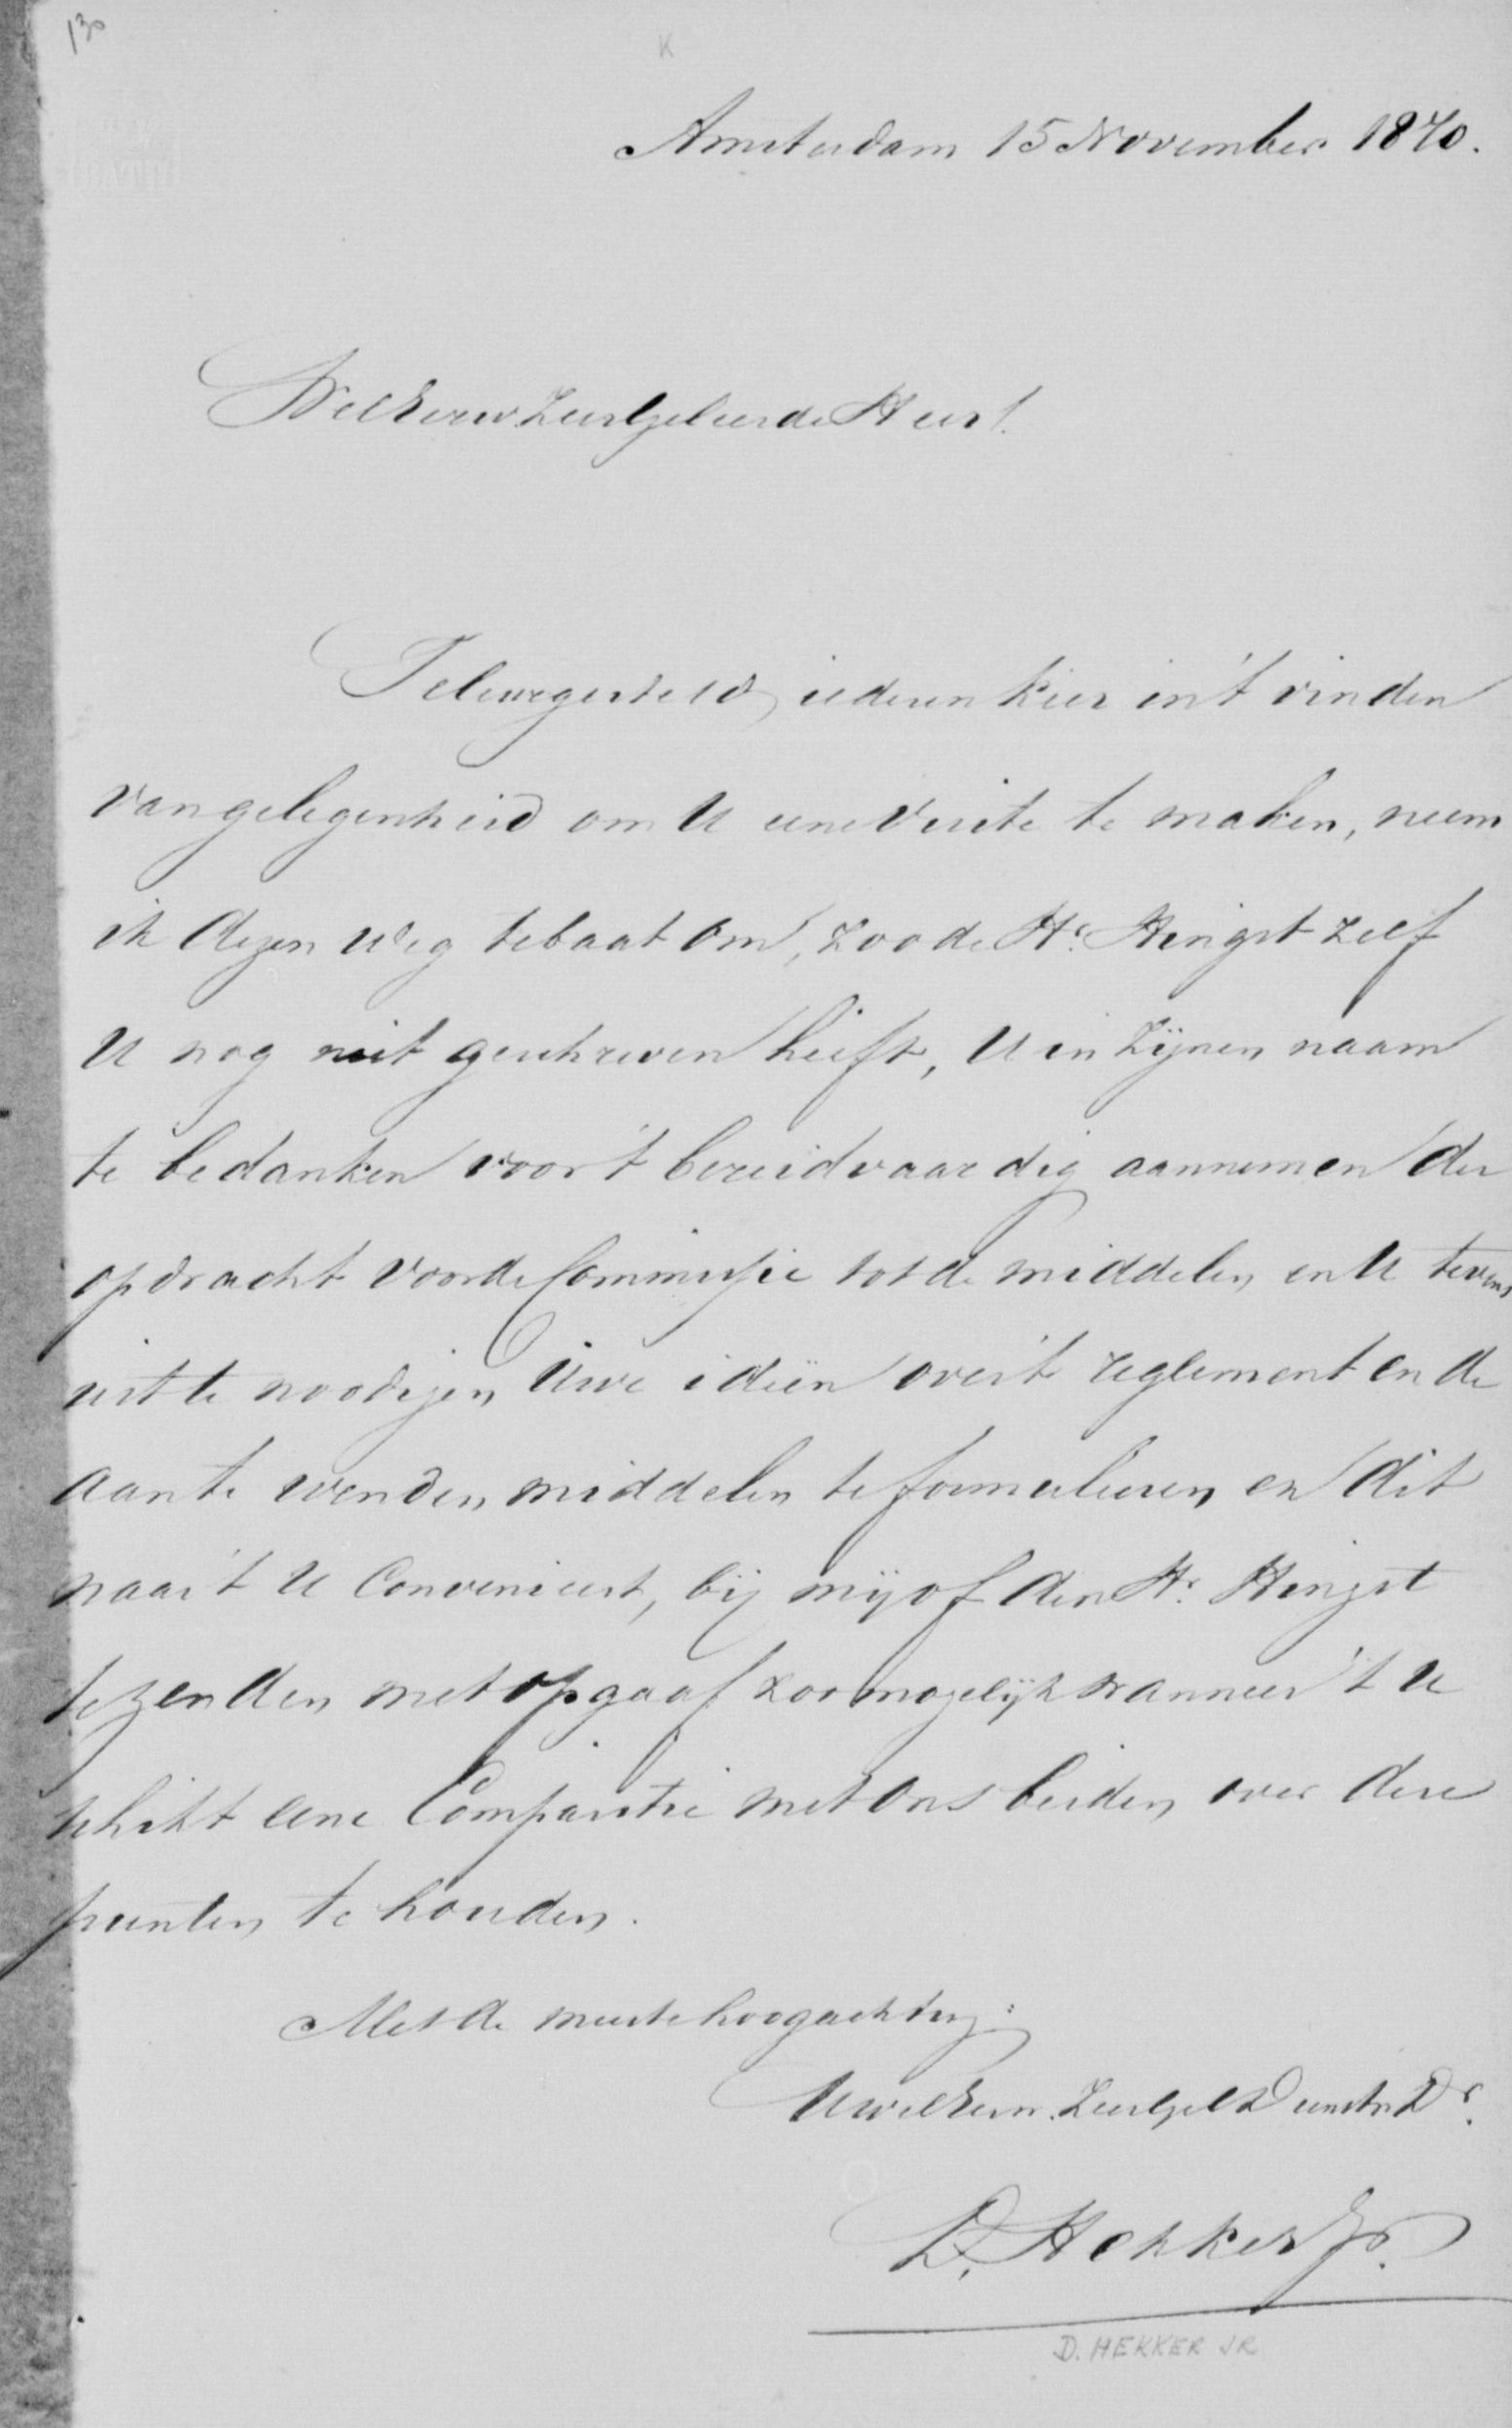 130
K
Amsterdam 15 November 1870.
WelEerw. ZeerGeleerde Heer!
Teleurgesteld iederen keer in't vinden
van gelegenheid om U eene visite te maken, neem
ik dezen weg te baat om, zoo de Hr. Hengst zelf
U nog niet geschreven heeft, U in zijnen naam
te bedanken voor 't bereidvaardig aannemen der
opdracht voor de Commissie tot de middelen en U tevens
uit te noodigen Uwe ideën over 't reglement en de
aan te wenden middelen te formuleeren en dit
naar 't U Convenieert, bij mij of den Hr. Hengst
te zenden met opgaaf zoo mogelijk wanneer 't U
schikt eene Comparitie met ons beiden over deze
punten te houden.
Met de meeste hoogachting:
UwelEerw. ZeerGel. Dienstw. Dr.
D. Hekker Jr.
D. HEKKER JR